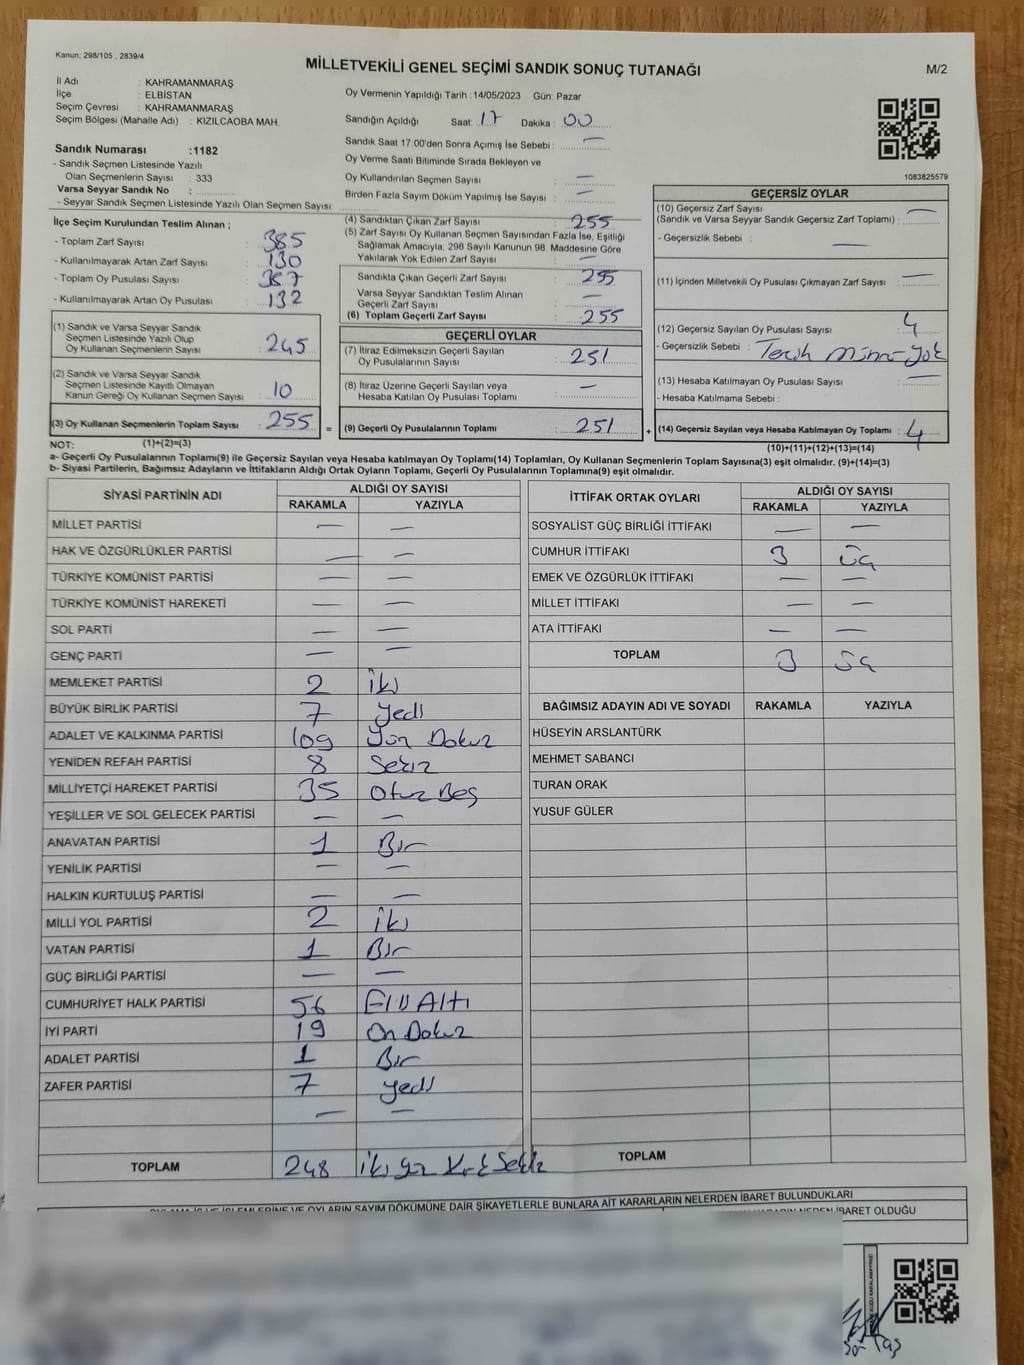 Kanun: 298/105 , 2839/4
MİLLETVEKİLİ GENEL SEÇİMİ SANDIK SONUÇ TUTANAĞI
M/2
İl Adı : KAHRAMANMARAŞ
İlçe : ELBİSTAN
Seçim Çevresi : KAHRAMANMARAŞ
Seçim Bölgesi (Mahalle Adı) : KIZILCAOBA MAH.
Sandık Numarası :1182
- Sandık Seçmen Listesinde Yazılı
Olan Seçmenlerin Sayısı : 333
Varsa Seyyar Sandık No :
- Seyyar Sandık Seçmen Listesinde Yazılı Olan Seçmen Sayısı:
Oy Vermenin Yapıldığı Tarih :14/05/2023 Gün: Pazar
Sandığın Açıldığı Saat: 17 Dakika : 00
Sandık Saat 17:00'den Sonra Açımış İse Sebebi : —
Oy Verme Saati Bitiminde Sırada Bekleyen ve
Oy Kullandırılan Seçmen Sayısı : —
Birden Fazla Sayım Döküm Yapılmış İse Sayısı : —
1083825579
İlçe Seçim Kurulundan Teslim Alınan ;
- Toplam Zarf Sayısı : 385
- Kullanılmayarak Artan Zarf Sayısı : 130
- Toplam Oy Pusulası Sayısı : 387
- Kullanılmayarak Artan Oy Pusulası : 132
(1) Sandık ve Varsa Seyyar Sandık
Seçmen Listesinde Yazılı Olup
Oy Kullanan Seçmenlerin Sayısı : 245
(2) Sandık ve Varsa Seyyar Sandık
Seçmen Listesinde Kayıtlı Olmayan
Kanun Gereği Oy Kullanan Seçmen Sayısı : 10
(3) Oy Kullanan Seçmenlerin Toplam Sayısı : 255
(1)+(2)=(3)
(4) Sandıktan Çıkan Zarf Sayısı : 255
(5) Zarf Sayısı Oy Kullanan Seçmen Sayısından Fazla İse, Eşitliği
Sağlamak Amacıyla; 298 Sayılı Kanunun 98. Maddesine Göre
Yakılarak Yok Edilen Zarf Sayısı : —
Sandıkta Çıkan Geçerli Zarf Sayısı : 255
Varsa Seyyar Sandıktan Teslim Alınan
Geçerli Zarf Sayısı : —
(6) Toplam Geçerli Zarf Sayısı : 255
GEÇERLİ OYLAR
(7) İtiraz Edilmeksizin Geçerli Sayılan
Oy Pusulalarının Sayısı : 251
(8) İtiraz Üzerine Geçerli Sayılan veya
Hesaba Katılan Oy Pusulası Toplamı : —
= (9) Geçerli Oy Pusulalarının Toplamı : 251
GEÇERSİZ OYLAR
(10) Geçersiz Zarf Sayısı : —
(Sandık ve Varsa Seyyar Sandık Geçersiz Zarf Toplamı)
- Geçersizlik Sebebi : —
(11) İçinden Milletvekili Oy Pusulası Çıkmayan Zarf Sayısı : —
(12) Geçersiz Sayılan Oy Pusulası Sayısı : 4
- Geçersizlik Sebebi : Tercih Mührü Yok
(13) Hesaba Katılmayan Oy Pusulası Sayısı : —
- Hesaba Katılmama Sebebi :
+ (14) Geçersiz Sayılan veya Hesaba Katılmayan Oy Toplamı : 4
(10)+(11)+(12)+(13)=(14)
NOT:
a- Geçerli Oy Pusulasının Toplamı(9) ile Geçersiz Sayılan veya Hesaba katılmayan Oy Toplamı(14) Toplamları, Oy Kullanan Seçmenlerin Toplam Sayısına(3) eşit olmalıdır. (9)+(14)=(3)
b- Siyasi Partilerin, Bağımsız Adayların ve İttifakların Aldığı Ortak Oyların Toplamı, Geçerli Oy Pusulalarının Toplamına(9) eşit olmalıdır.
SİYASİ PARTİNİN ADI ALDIĞI OY SAYISI
RAKAMLA YAZIYLA
MİLLET PARTİSİ — —
HAK VE ÖZGÜRLÜKLER PARTİSİ — —
TÜRKİYE KOMÜNİST PARTİSİ — —
TÜRKİYE KOMÜNİST HAREKETİ — —
SOL PARTİ — —
GENÇ PARTİ — —
MEMLEKET PARTİSİ 2 iki
BÜYÜK BİRLİK PARTİSİ 7 yedi
ADALET VE KALKINMA PARTİSİ 109 Yüz Dokuz
YENİDEN REFAH PARTİSİ 8 Sekiz
MİLLİYETÇİ HAREKET PARTİSİ 35 Otuz Beş
YEŞİLLER VE SOL GELECEK PARTİSİ — —
ANAVATAN PARTİSİ 1 Bir
YENİLİK PARTİSİ — —
HALKIN KURTULUŞ PARTİSİ — —
MİLLİ YOL PARTİSİ 2 iki
VATAN PARTİSİ 1 Bir
GÜÇ BİRLİĞİ PARTİSİ — —
CUMHURİYET HALK PARTİSİ 56 Elli Altı
İYİ PARTİ 19 On Dokuz
ADALET PARTİSİ 1 Bir
ZAFER PARTİSİ 7 yedi
— —
TOPLAM 248 iki yüz Kırk Sekiz
İTTİFAK ORTAK OYLARI ALDIĞI OY SAYISI
RAKAMLA YAZIYLA
SOSYALİST GÜÇ BİRLİĞİ İTTİFAKI — —
CUMHUR İTTİFAKI 3 üç
EMEK VE ÖZGÜRLÜK İTTİFAKI — —
MİLLET İTTİFAKI — —
ATA İTTİFAKI — —
TOPLAM 3 üç
BAĞIMSIZ ADAYIN ADI VE SOYADI RAKAMLA YAZIYLA
HÜSEYİN ARSLANTÜRK
MEHMET SABANCI
TURAN ORAK
YUSUF GÜLER
TOPLAM
OYLAMA İŞ VE İŞLEMLERİNE VE OYLARIN SAYIM DÖKÜMÜNE DAİR ŞİKAYETLERLE BUNLARA AİT KARARLARIN NELERDEN İBARET BULUNDUKLARI
İBARET OLDUĞU